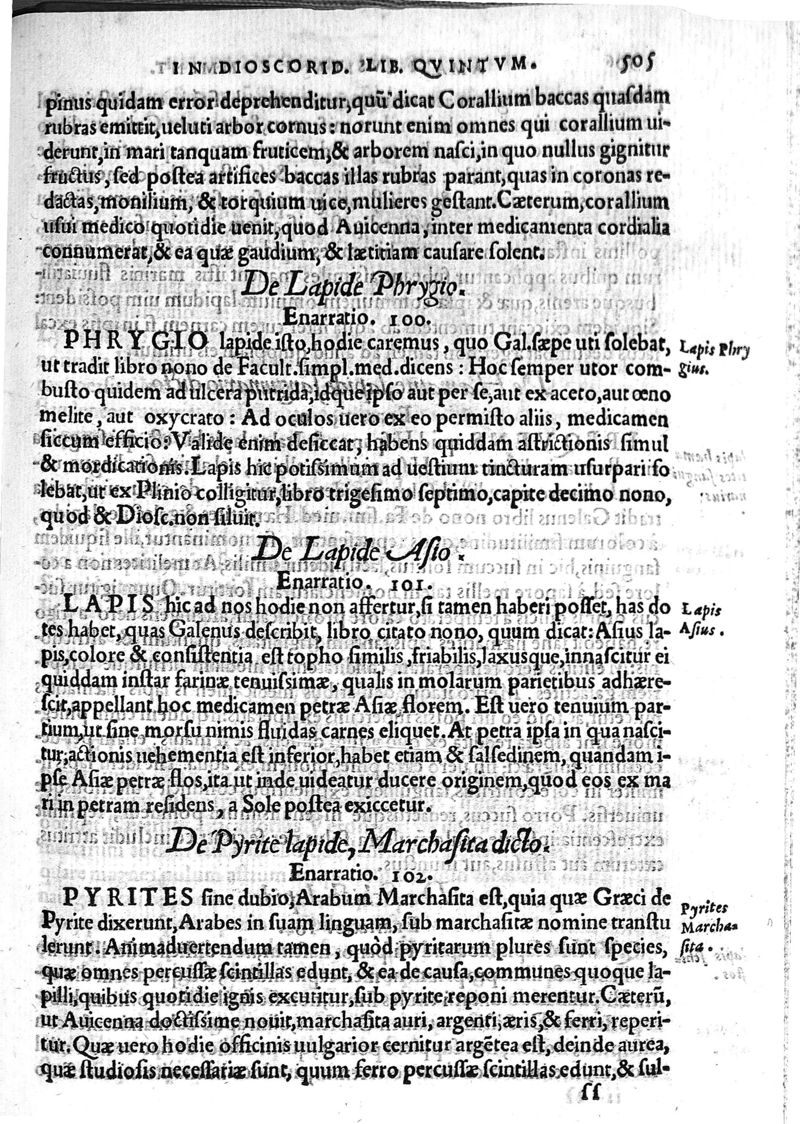 IN DIOSCORID. LIB. QVINTVM. 505
pinus quidam error deprehenditur, quũ dicat Corallium baccas quasdam
rubras emittit, ueluti arbor cornus: norunt enim omnes qui corallium ui-
derunt, in mari tanquam fruticem, & arborem nasci, in quo nullus gignitur
fructus, sed postea artifices baccas illas rubras parant, quas in coronas re-
dactas, monilium, & torquium uice, mulieres gestant. Cæterum, corallium
usui medico quotidie uenit, quod Auicenna, inter medicamenta cordialia
connumerat, & ea quæ gaudium, & lætitiam causare solent.
De Lapide Phrygio.
Enarratio. 100.
PHRYGIO lapide isto, hodie caremus, quo Gal. sæpe uti solebat,
Lapis Phry
ut tradit libro nono de Facult. simpl. med. dicens: Hoc semper utor com-
gius.
busto quidem ad ulcera putrida, idque ipso aut per se, aut ex aceto, aut œno
melite, aut oxycrato: Ad oculos uero ex eo permisto aliis, medicamen
siccum efficio: Valide enim desiccat, habens quiddam astrictionis simul
& mordicationis. Lapis hic potissimum ad uestium tincturam usurpari so
lebat, ut ex Plinio colligitur, libro trigesimo septimo, capite decimo nono,
quod & Diosc. non siluit.
De Lapide Asio.
Enarratio. 101.
LAPIS hic ad nos hodie non affertur, si tamen haberi posset, has do
Lapis
tes habet, quas Galenus describit, libro citato nono, quum dicat: Asius la-
Asius.
pis, colore & consistentia est topho similis, friabilis, laxusque, innascitur ei
quiddam instar farinæ tenuissimæ, qualis in molarum parietibus adhære-
scit, appellant hoc medicamen petræ Asiæ florem. Est uero tenuium par-
tium, ut sine morsu nimis fluidas carnes eliquet. At petra ipsa in qua nasci-
tur, actionis uehementia est inferior, habet etiam & salsedinem, quandam i-
pse Asiæ petræ flos, ita ut inde uideatur ducere originem, quod eos ex ma
ri in petram residens, a Sole postea exiccetur.
De Pyrite lapide, Marchasita dicto.
Enarratio. 102.
PYRITES sine dubio, Arabum Marchasita est, quia quæ Græci de
Pyrites
Pyrite dixerunt, Arabes in suam linguam, sub marchasitæ nomine transtu
Marcha-
lerunt. Animaduertendum tamen, quòd pyritarum plures sunt species,
sita.
quæ omnes percussæ scintillas edunt, & ea de causa, communes quoque la-
pilli, quibus quotidie ignis excutitur, sub pyrite, reponi merentur. Cæterũ,
ut Auicenna doctissime nouit, marchasita auri, argenti, æris, & ferri, reperi-
tur. Quæ uero hodie officinis uulgarior cernitur argẽtea est, deinde aurea,
quæ studiosis necessariæ sunt, quum ferro percussæ scintillas edunt, & sul-
ss